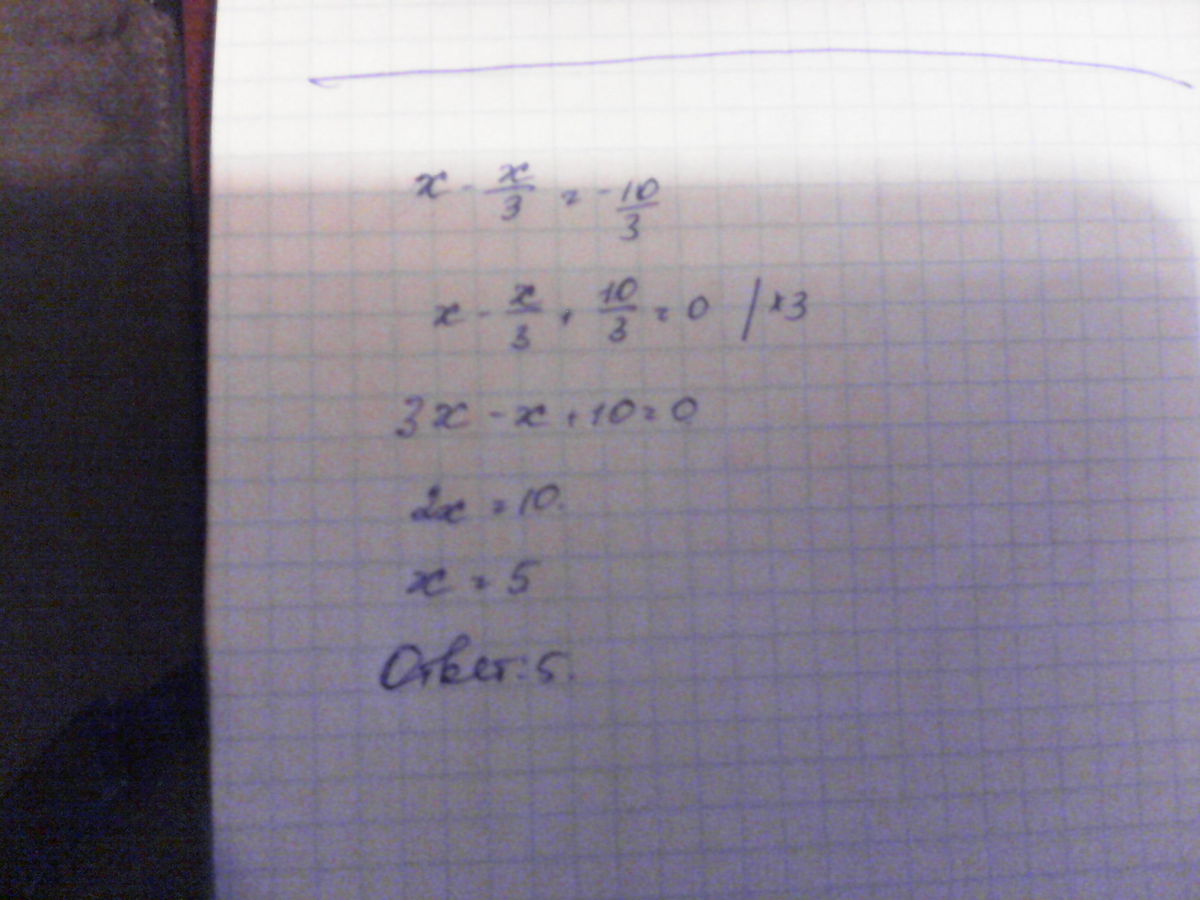 x - x/3 = -10/3
x - x/3 + 10/3 = 0 | *3
3x - x + 10 = 0
2x = 10.
x = 5
Ответ: 5.